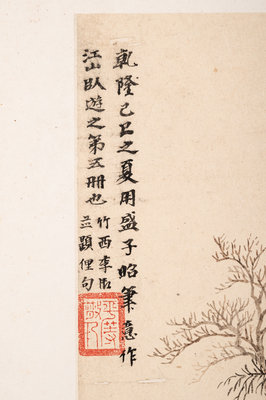 乾隆己卯之夏用盛子昭筆意作
江山臥遊之第五冊也竹西
並題俚句